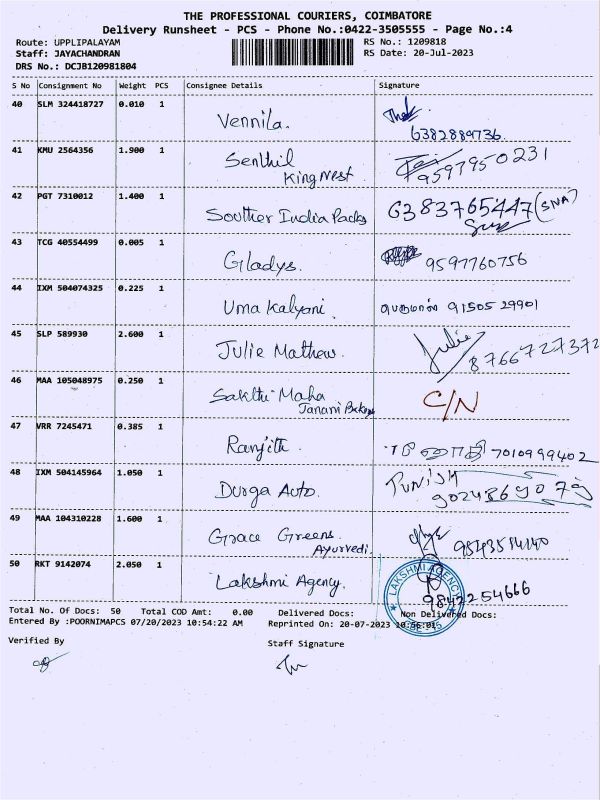 THE PROFESSIONAL COURIERS, COIMBATORE
Delivery Runsheet - PCS - Phone No.:0422-3505555 - Page No.:4
Route: UPPLIPALAYAM RS No.: 1209818
Staff: JAYACHANDRAN RS Date: 20-Jul-2023
DRS No.: DCJB120981804
S No Consignment No Weight PCS Consignee Details Signature
40 SLM 324418727 0.010 1 Vennila.
6382889736
41 KMU 2564356 1.900 1 Senthil 9597950231
King Nest
42 PGT 7310012 1.400 1 Souther India Packs 6383765447 (SNA)
43 TCG 40554499 0.005 1 Gladys. 9597760756
44 IXM 504074325 0.225 1 Uma Kalyani. பெருமாள் 91505 29901
45 SLP 589930 2.600 1 Julie Mathew. Julie 8766727372
46 MAA 105048975 0.250 1 Sakthi Maha C/N
Janani
47 VRR 7245471 0.385 1 Ranjith. 7010999402
48 IXM 504145964 1.050 1 Durga Auto. 
49 MAA 104310228 1.600 1 Grace Greens
Ayurvedi.
50 RKT 9142074 2.050 1 Lakshmi Agency. 9842254666
LAKSHMI AGENCY
Total No. Of Docs: 50 Total COD Amt: 0.00 Delivered Docs: Non Delivered Docs:
Entered By :POORNIMAPCS 07/20/2023 10:54:22 AM Reprinted On: 20-07-2023 10:56:01
Verified By Staff Signature